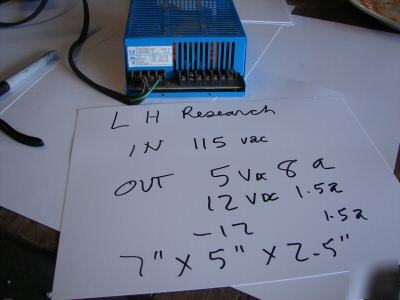 L H Research
IN 115 vac
OUT 5 VDC 8 a
12 VDC 1.5a
-12 1.5a
7" X 5" X 2.5"